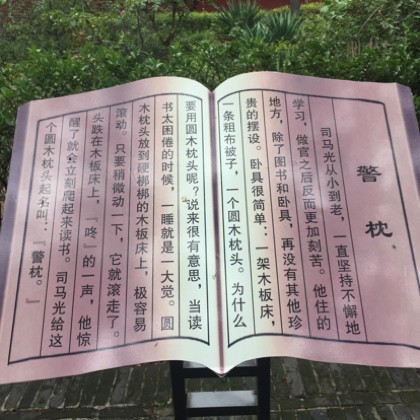 警枕
司马光从小到老，一直坚持不懈地
学习，做官之后反而更加刻苦。他住的
地方，除了图书和卧具，再没有其他珍
贵的摆设。卧具很简单：一架木板床，
一条粗布被子，一个圆木枕头。为什么
要用圆木枕头呢？说来很有意思，当读
书太困倦的时候，一睡就是一大觉。圆
木枕头放到硬梆梆的木板床上，极容易
滚动。只要稍微动一下，它就滚走了。
头跌在木板床上，『咚』的一声，他惊
醒了就会立刻爬起来读书。司马光给这
个圆木枕头起名叫：『警枕。』